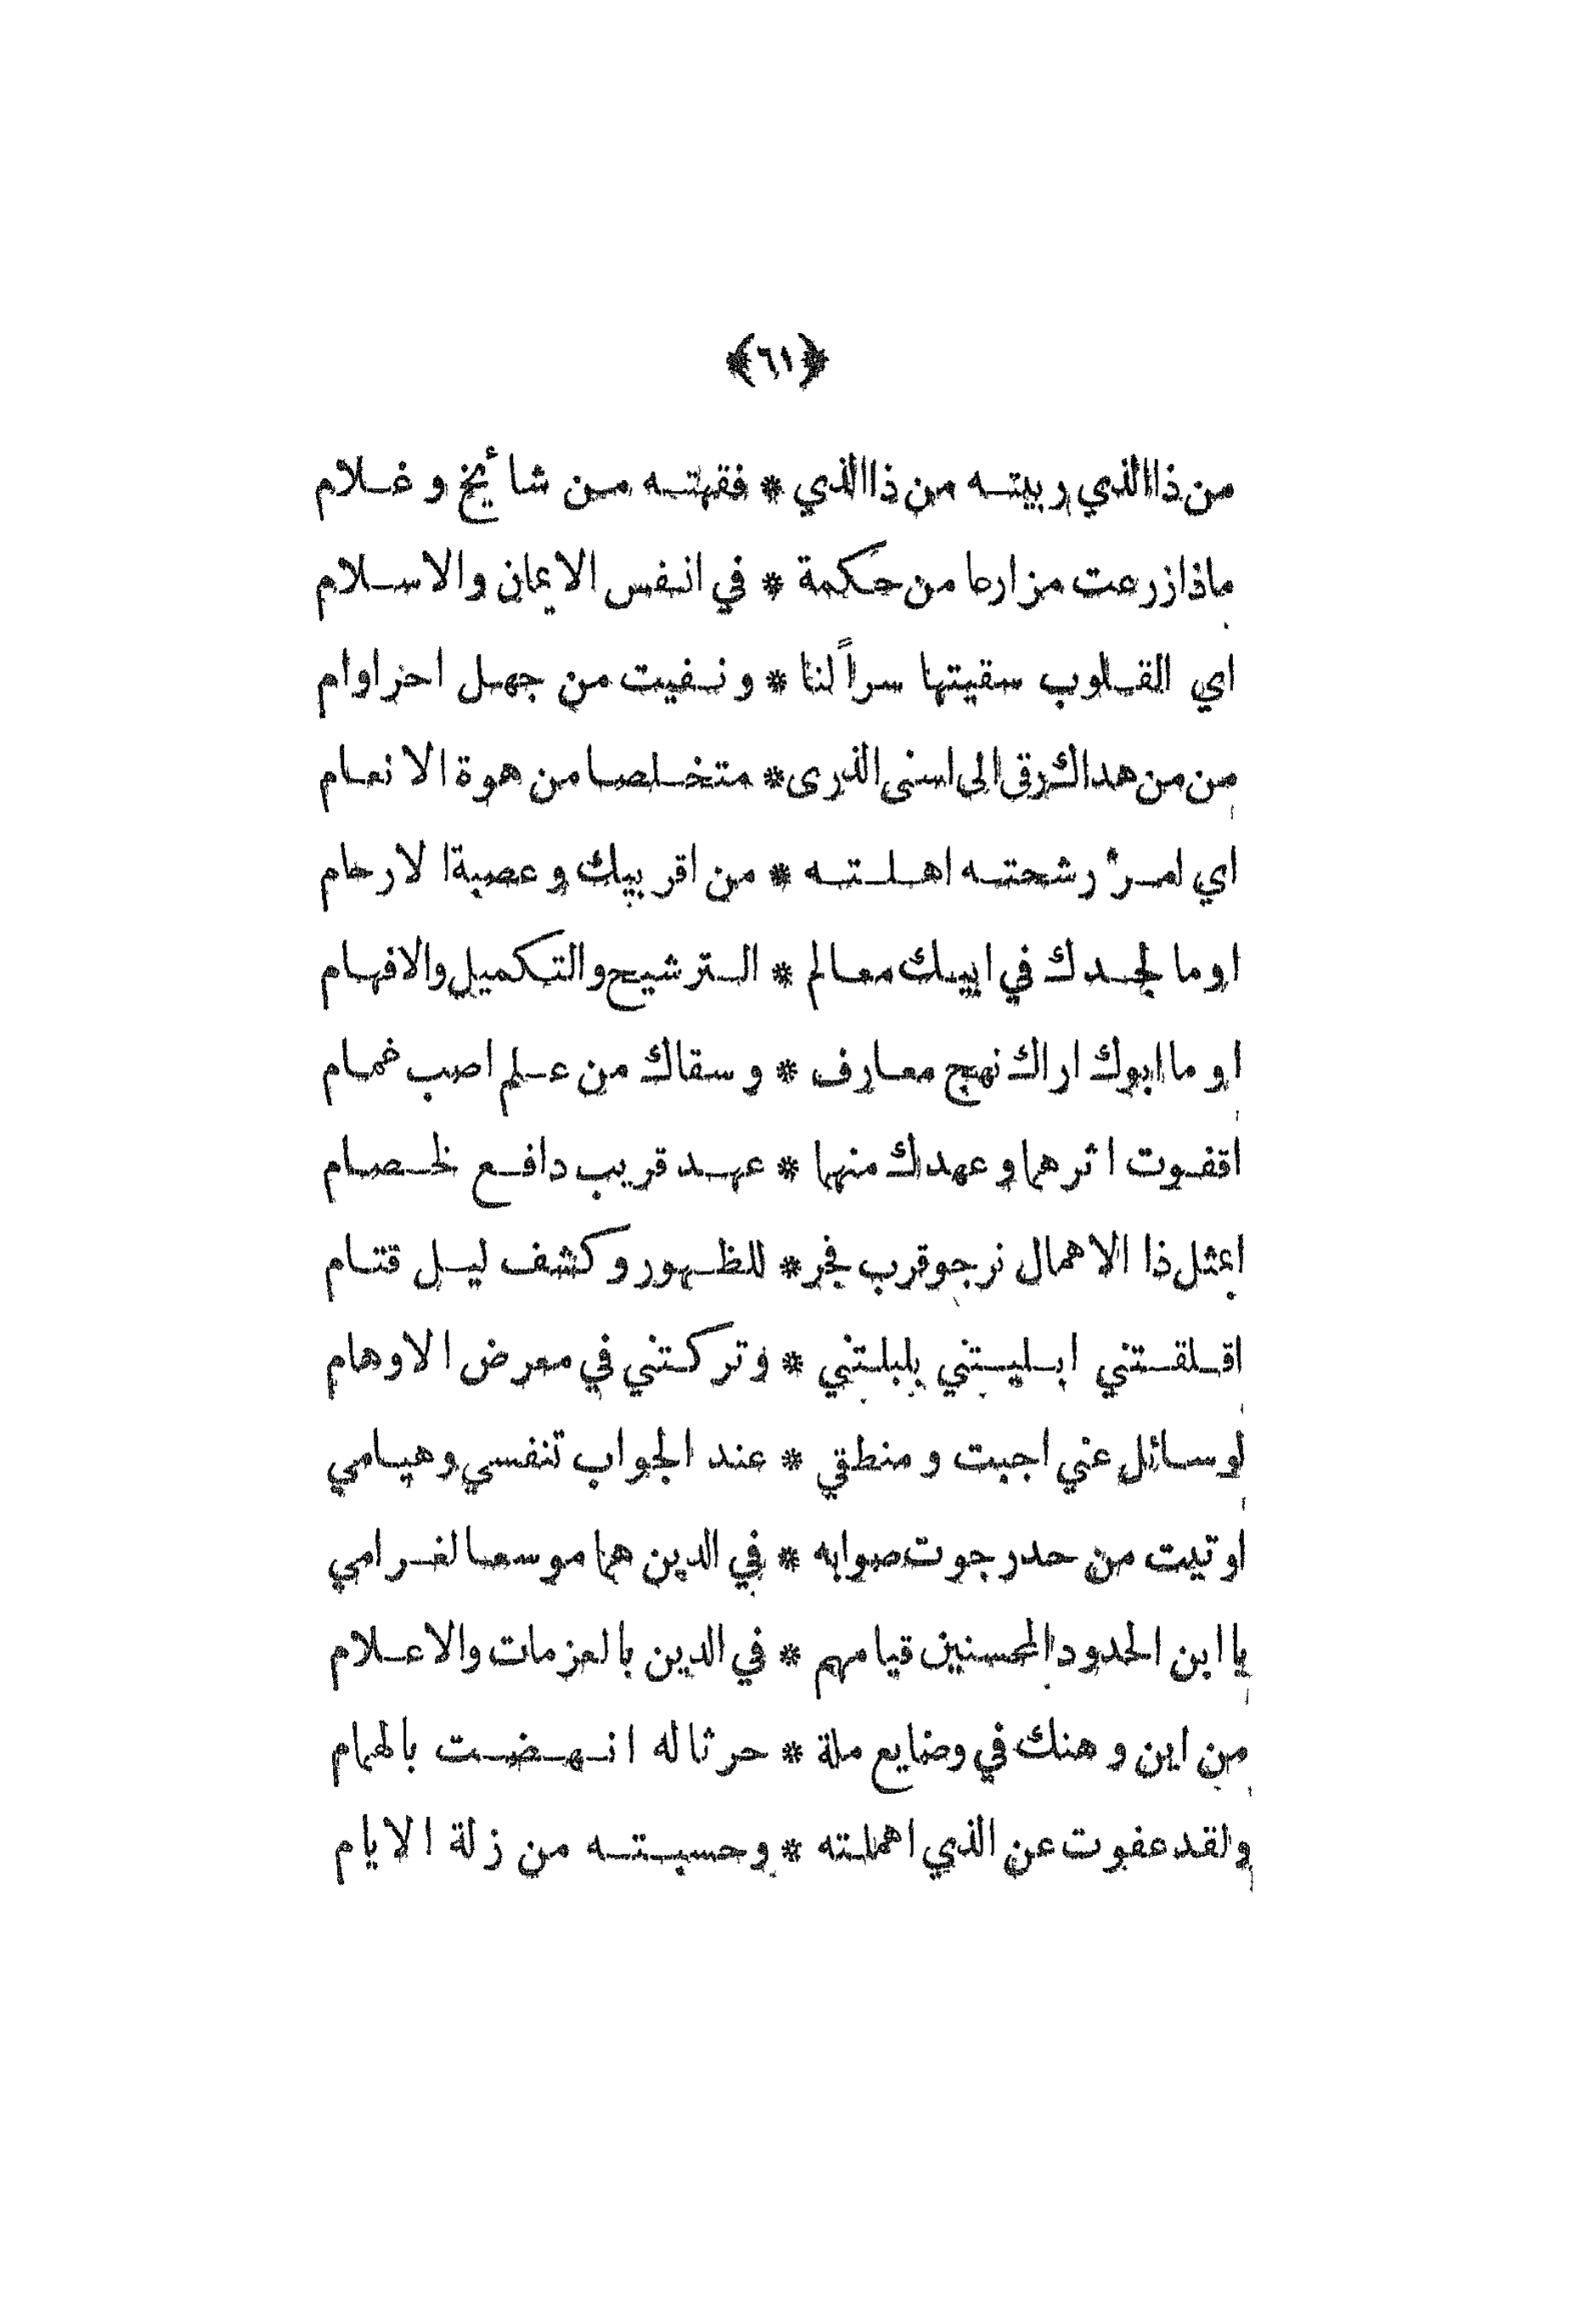 ﴿٦١﴾
من ذا الذي ربيته من ذا الذي * فقهته من شأيخ و غلام
ماذا زرعت مزارعا من حكمة * في انفس الايمان والاسلام
اي القلوب سقيتها سراً لنا * و نفيت من جهل احز اوام
من من هداك رقى الى اسنى الذرى * متخلصا من هوة الانعام
اي امرء رشحته اهلته * من اقربيك و عصبة الارحام
او ما لجدك في ابيك معالم * الترشيح والتكميل والافهام
او ما ابوك اراك نهج معارف * و سقاك من علم اصب غمام
اقفوت اثرهما و عهدك منهما * عهد قريب دافع لخصام
ابمثل ذا الاهمال نرجو قرب فجر * للظهور و كشف ليل قتام
اقلقتني ابليتني بلبلتني * و تركتني في معرض الاوهام
لو سائل عني اجبت و منطقي * عند الجواب تنفسي و هيامي
اوتيت من حد رجوت صوابه * في الدين هما موسعا لغرامي
يا ابن الحدود المحسنين قيامهم * في الدين بالعزمات والاعلام
من اين وهنك في وضايع ملة * حرثا له انهضت بالهمام
ولقد عفوت عن الذي اهملته * وحسبته من زلة الايام